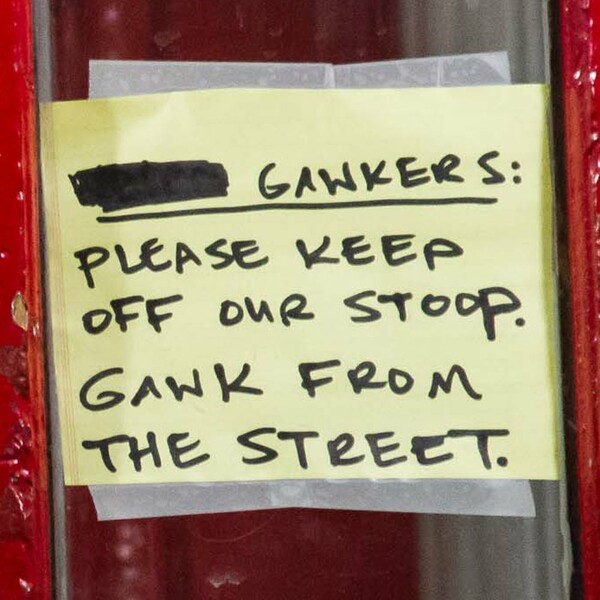 GAWKERS:
PLEASE KEEP
OFF OUR STOOP.
GAWK FROM
THE STREET.